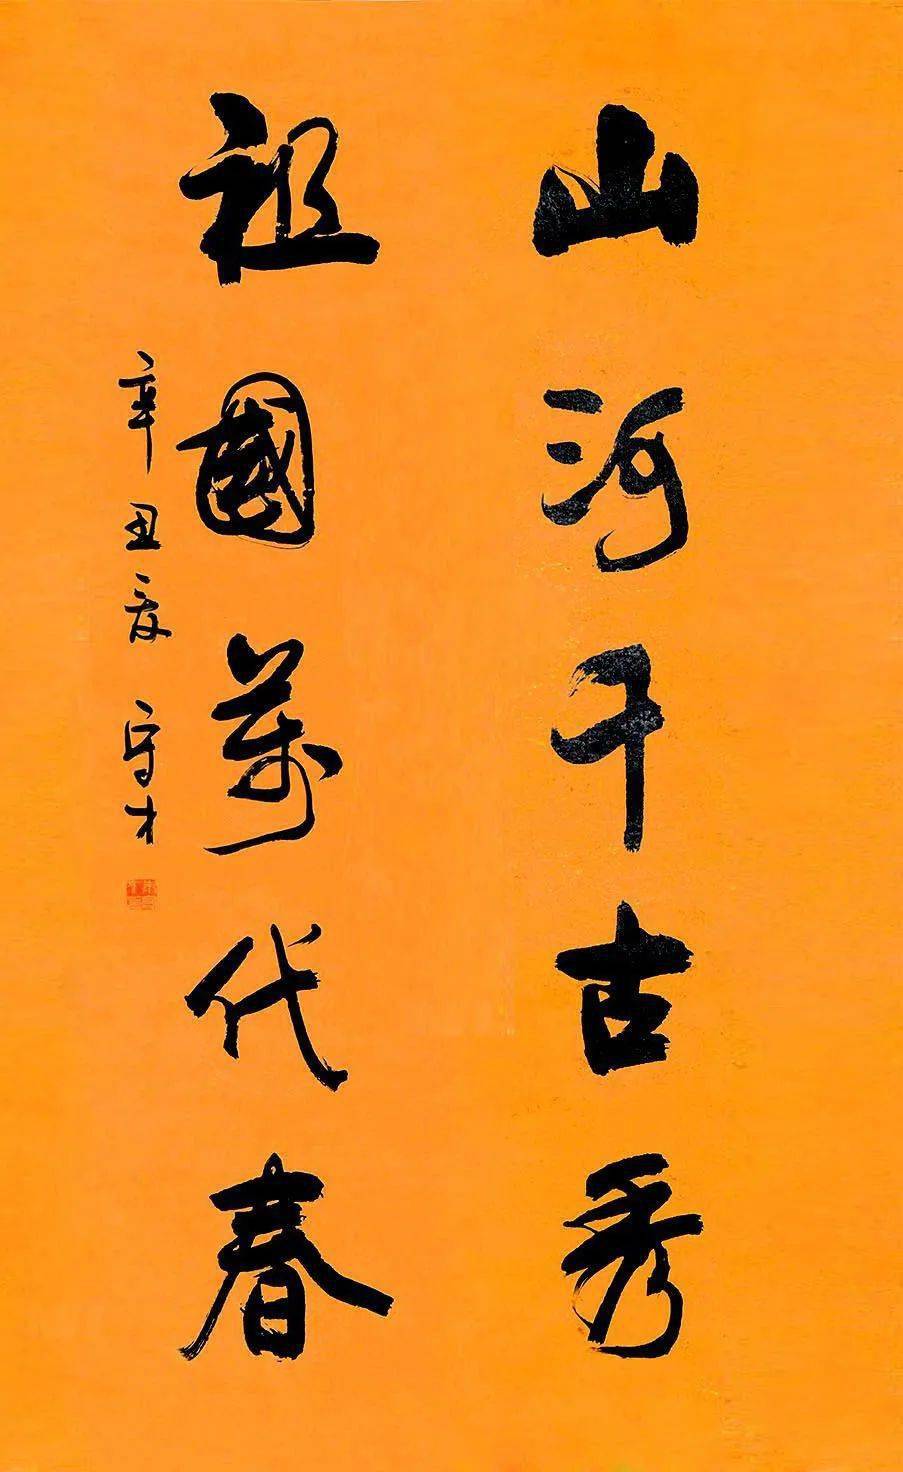 山河千古秀
祖國萬代春
辛丑夏 守才